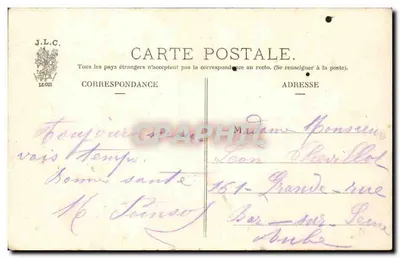 J.L.C.
CARTE POSTALE.
Tous les pays étrangers n'acceptent pas la correspondance au recto. (Se renseigner à la poste).
CORRESPONDANCE
ADRESSE
Toujours
vais temps.
Bonne santé
Madame Monsieur
Léon Chevillot
161 Grande-rue
Bar-sur-Seine
Aube